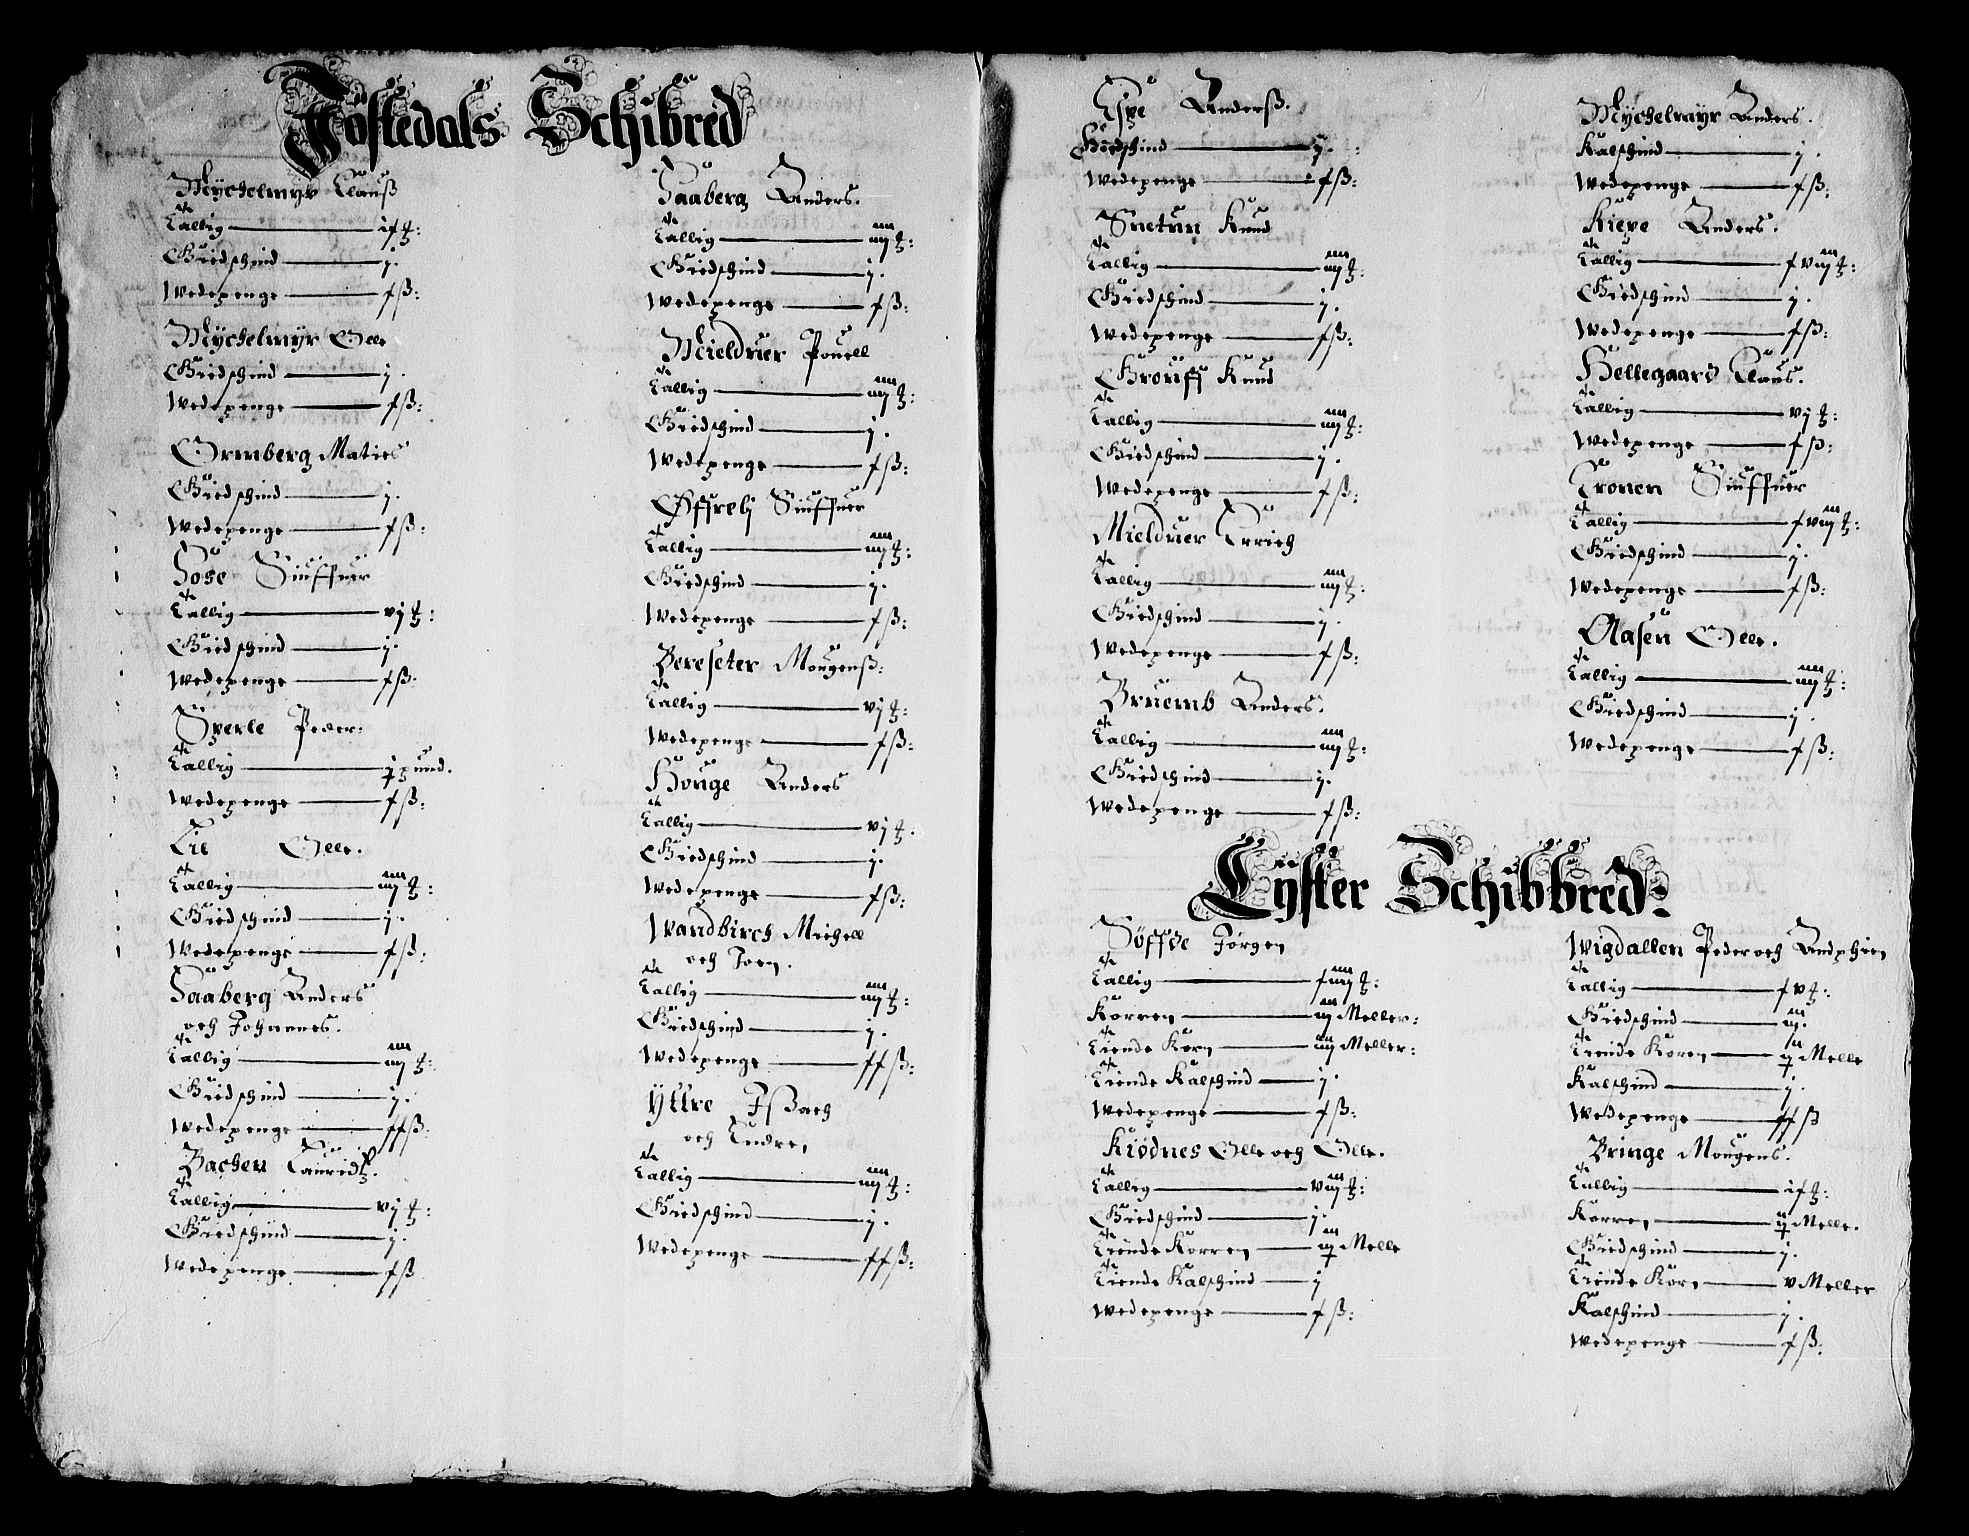 Jostedals Schibred
Myckelmyr Clauß
Tallig — if ℔:
Giedschind — j.
Wedepenge — f ß:
Myckelmyr Olle
Giedschind — j.
Wedepenge — f ß:
Ormberg Maties
Giedschind — j.
Wedepenge — f ß:
Fose Siuffuer
Tallig — vj ℔:
Giedschind — j.
Wedepenge — f ß:
Sperle Peder:
Tallig — j pund.
Wedepenge — f ß:
Lie Olle.
Tallig — iiij ℔:
Giedschind — j.
Wedepenge — f ß:
Faaberg Anders
och Johannes.
Tallig — iiij ℔:
Giedschind — j.
Wedepenge — ff ß:
Bachen Lauridtz.
Tallig — vj ℔:
Giedschind — j.
Wedepenge — f ß
Faaberg Anders.
Tallig — iiij ℔:
Giedschind — j.
Wedepenge — f ß:
Mielduer Pouell
Tallig — iiij ℔:
Giedschind — j.
Wedepenge — f ß:
Øffrelj Siuffuer
Tallig — iiij ℔:
Giedschind — j.
Wedepenge — f ß:
Bereseter Mougenß:
Tallig — vj ℔:
Wedepenge — f ß:
Houge Anders
Tallig — vj ℔.
Giedschind — j.
Wedepenge — f ß:
Wandbirch Michell
och Joen.
Tallig — iiij ℔:
Giedschind — j.
Wedepenge — ff ß:
Yttre
och Endre,
Tallig — iiij ℔:
Giedschind — j.
Wedepenge — ff ß:
Espe Anderß.
Giedschind — j.
Wedepenge — f ß:
Snetun Knud
Tallig — iiij ℔:
Giedschind — j.
Wedepenge — f ß:
Grouff Knud
Tallig — iiij ℔:
Giedschind — j.
Wedepenge — f ß:
Mielduer Erich
Tallig — iiij ℔:
Giedschind — j.
Wedepenge — f ß:
Bruemb Anders.
Tallig — iiij ℔:
Giedschind — j.
Wedepenge — f ß:
Myckelmyr Anders.
Kalschind — j.
Wedepenge — f ß:
Kieue Anders.
Tallig — f viij ℔:
Giedschind — j.
Wedepenge — f ß:
Hellegaard Claus.
Tallig — vj ℔:
Wedepenge — f ß:
Cronen Siuffuer
Tallig — f viij ℔:
Giedschind — j.
Wedepenge — f ß:
Aasen Olle.
Tallig — iiij ℔:
Giedschind — j.
Wedepenge — f ß:
Lyster Schibbred:
Søffde Jørgen
Tallig — f iiij ℔:
Korren — iij Meller:
Tiende Korn — iiij Meller:
Tiende Kalschind — j.
Wedepenge — f ß:
Kiødnes Olle och Olle.
Tallig — viij ℔:
Giedschind — j.
Tiende Korren — iij Melle
Tiende Kalschind — j
Wedepenge — f ß:
Wigdallen Peder och
Tallig — f v ℔:
Giedschind — ij.
Tiende Koren — ij Melle
Kalschind — j.
Wedepenge — ff ß
Bringe Mougens.
Tallig — if ℔:
Korren — ij Melle.
Giedschind — j.
Tiende Korn — v Meller
Kalschind — j.
Wedepenge — f ß: